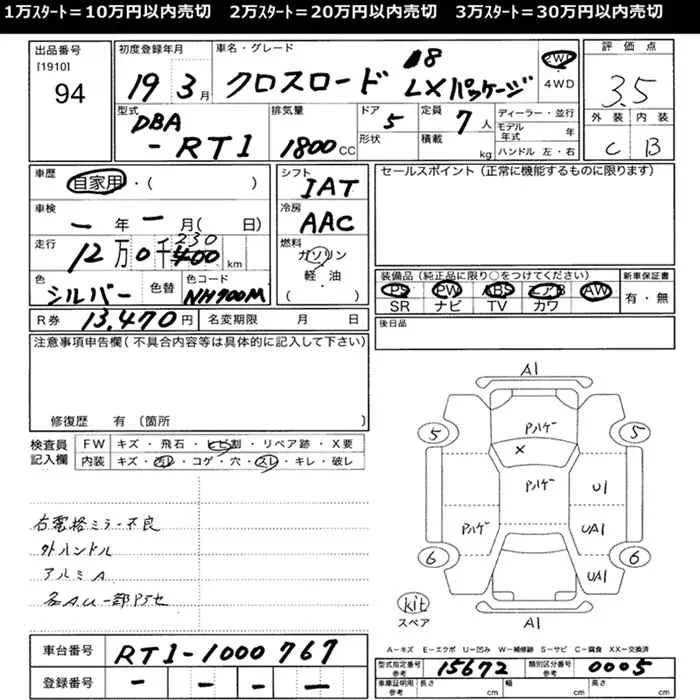 1万スタート=10万円以内売切 2万スタート=20万円以内売切 3万スタート=30万円以内売切
出品番号
[1910]
94
初度登録年月
19 3月
車名・グレード
クロスロード 18 LXパッケージ
2WD
4WD
評価点
3.5
外装 内装
C B
型式
DBA
-RT1
排気量
1800 CC
ドア 5
形状
定員 7人
積載 kg
ディーラー・並行
モデル年式 年
ハンドル 左・右
車歴
自家用・( )
車検
- 年 - 月( 日)
走行
12万0千 230 400 km
色
シルバー 色替
色コード
NH700M
シフト
IAT
冷房
AAC
燃料
ガソリン
軽・油
( )
セールスポイント(正常に機能するものに限ります)
装備品(純正品に限り○をつけてください)
PS PW ABS エアB AW
SR ナビ TV カワ
新車保証書
有・無
R券 13,470円 名変期限 月 日
後日品
注意事項申告欄(不具合内容等は具体的に記入して下さい)
修復歴 有(箇所 )
検査員記入欄
FW キズ・飛石・ヒビ割・リペア跡・X要
内装 キズ・汚レ・コゲ・穴・スレ・キレ・破レ
右電格ミラー不良
外ハンドル
アルミA
各A.U一部P5セ
A1
Pハゲ
5 5
X
Pハゲ
U1
Pハゲ
UA1
6 6
UA1
kit
スペア
A1
A-キズ E-エクボ U-凹み W-補修跡 S-サビ C-腐食 XX-交換済
車台番号
RT1-1000767
登録番号
- - - -
型式指定番号
参考
15672
類別区分番号
参考
0005
車庫証明用
参考
長さ cm 幅 cm 高さ cm